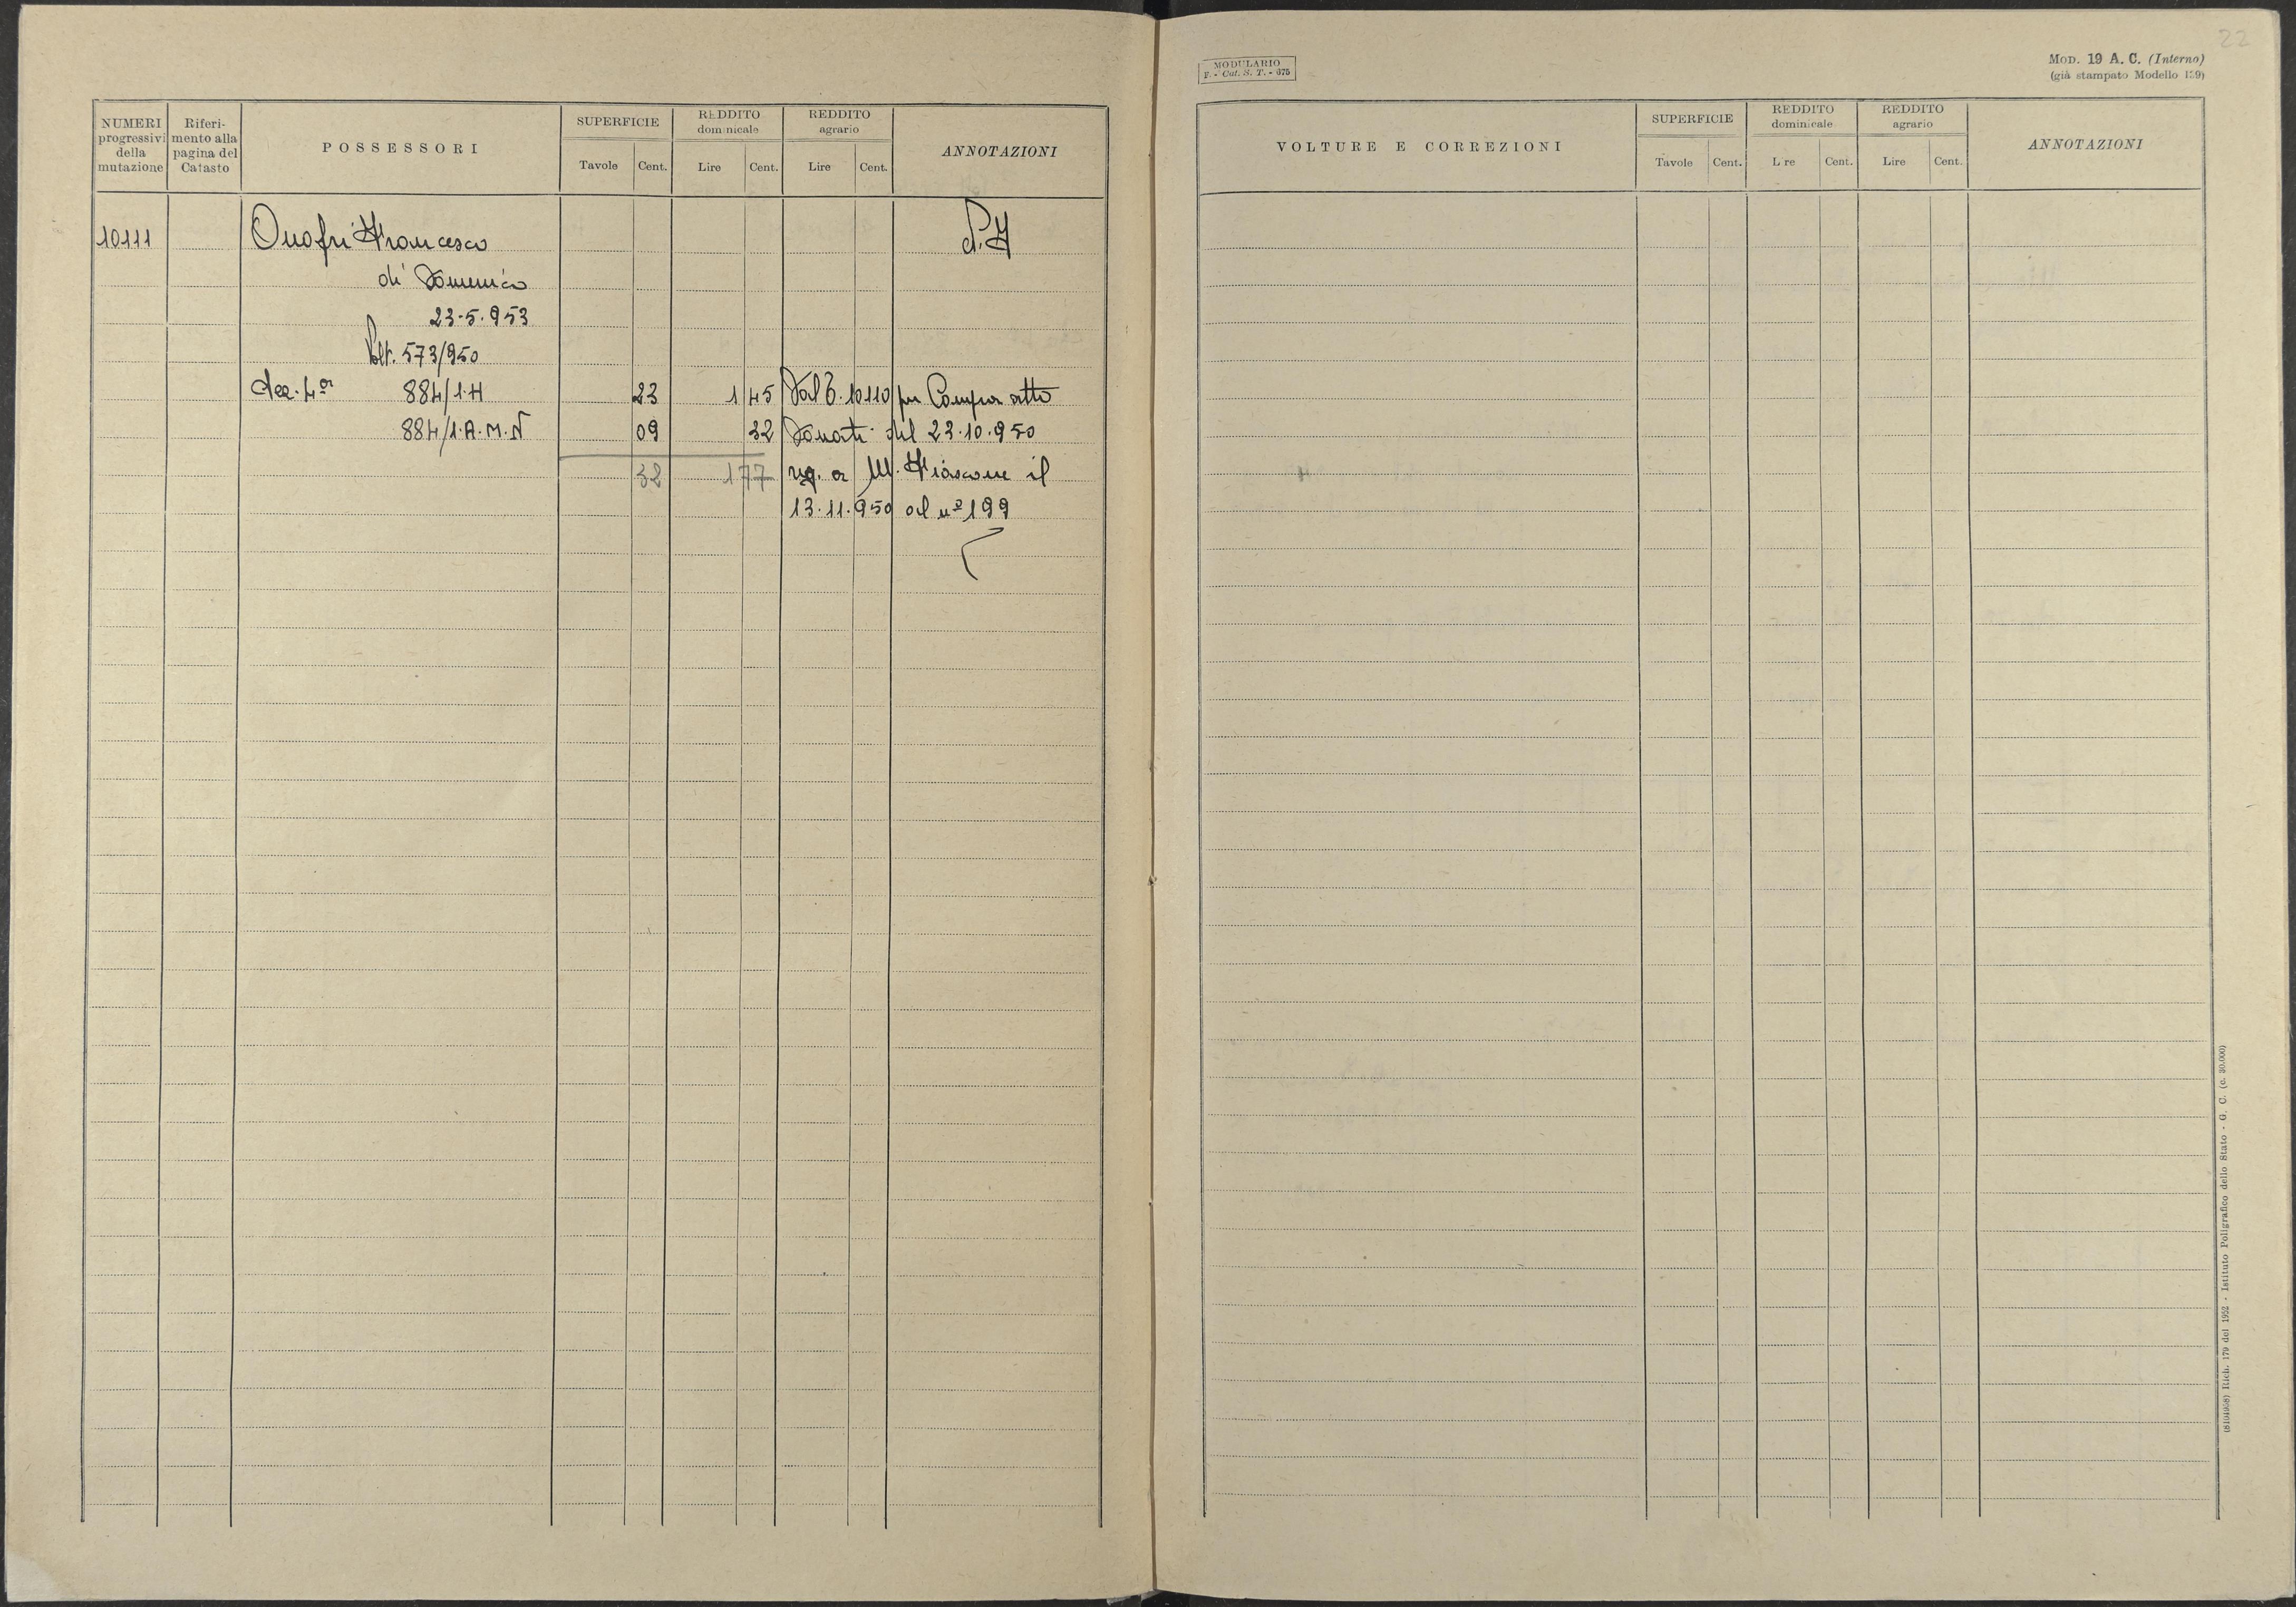 NUMERI progressivi della mutazione
Riferimento alla pagina del Catasto
POSSESSORI
SUPERFICIE
Tavole Cent.
REDDITO dominicale
Lire Cent.
REDDITO agrario
Lire Cent.
ANNOTAZIONI
10111 Onofri Francesco
di Domenico
23.5.953
Volt. 573/950
Sez. 4a 884/1.H 23 1 45 Dal C. 10110 per Compra atto
884/1.A.M.N 09 32 Donati del 23.10.950
32 1 77 reg. a M. Fiascone il
13.11.950 al nº 199
22
MODULARIO
F. - Cat. S. T. - 675
MOD. 19 A. C. (Interno)
(già stampato Modello 139)
VOLTURE E CORREZIONI
SUPERFICIE
Tavole Cent.
REDDITO dominicale
L re Cent.
REDDITO agrario
Lire Cent.
ANNOTAZIONI
(8104958) Rich. 179 del 1952 - Istituto Poligrafico dello Stato - G. C. (c. 30.000)